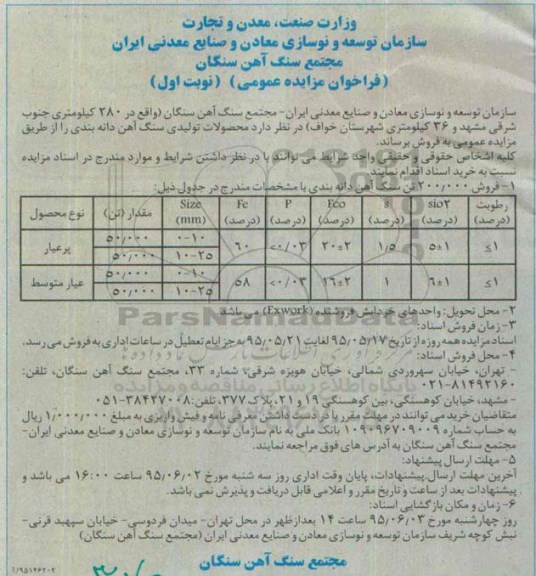 وزارت صنعت، معدن و تجارت
سازمان توسعه و نوسازی معادن و صنایع معدنی ایران
مجتمع سنگ آهن سنگان
(فراخوان مزایده عمومی) (نوبت اول)
سازمان توسعه و نوسازی معادن و صنایع معدنی ایران- مجتمع سنگ آهن سنگان (واقع در ۲۸۰ کیلومتری جنوب
شرقی مشهد و ۳۶ کیلومتری شهرستان خواف) در نظر دارد محصولات تولیدی سنگ آهن دانه بندی را از طریق
مزایده عمومی به فروش برساند.
کلیه اشخاص حقوقی و حقیقی واجد شرایط می توانند با در نظر داشتن شرایط و موارد مندرج در اسناد مزایده
نسبت به خرید اسناد اقدام نمایند.
۱- فروش ۲۰۰/۰۰۰ تن سنگ آهن دانه بندی با مشخصات مندرج در جدول ذیل:
نوع محصول مقدار (تن) Size (mm) Fe (درصد) P (درصد) Feo (درصد) s (درصد) sio۲ (درصد) رطوبت (درصد)
پرعیار ۵۰/۰۰۰ ۰-۱۰ ۶۰ <۰/۰۳ ۲۰±۲ ۱/۵ ۵±۱ ≤۱
۵۰/۰۰۰ ۱۰-۲۵
عیار متوسط ۵۰/۰۰۰ ۰-۱۰ ۵۸ <۰/۰۳ ۱۶±۲ ۱ ۶±۱ ≤۱
۵۰/۰۰۰ ۱۰-۲۵
۲- محل تحویل: واحدهای خردایش فروشنده (Exwork) می باشد
۳- زمان فروش اسناد:
اسناد مزایده همه روزه از تاریخ ۹۵/۰۵/۱۷ لغایت ۹۵/۰۵/۲۱ به جز ایام تعطیل در ساعات اداری به فروش می رسد.
۴- محل فروش اسناد:
- تهران، خیابان سهروردی شمالی، خیابان هویزه شرقی، شماره ۳۳، مجتمع سنگ آهن سنگان، تلفن:
۰۲۱-۸۱۴۹۲۱۶۰
- مشهد، خیابان کوهسنگی، بین کوهسنگی ۱۹ و ۲۱، پلاک ۳۷۷، تلفن: ۰۵۱-۳۸۴۲۷۰۰۸
متقاضیان خرید می توانند در مهلت مقرر با در دست داشتن معرفی نامه و فیش واریزی به مبلغ ۱/۰۰۰/۰۰۰ ریال
به حساب شماره ۰۱۰۹۰۹۶۷۰۹۰۰۹ بانک ملی به نام سازمان توسعه و نوسازی معادن و صنایع معدنی ایران-
مجتمع سنگ آهن سنگان به آدرس های فوق مراجعه نمایند.
۵- مهلت ارسال پیشنهاد:
آخرین مهلت ارسال پیشنهادات، پایان وقت اداری روز سه شنبه مورخ ۹۵/۰۶/۰۲ ساعت ۱۶:۰۰ می باشد و
پیشنهادات بعد از ساعت و تاریخ مقرر و اعلامی قابل دریافت و پذیرش نمی باشد.
۶- زمان و مکان بازگشایی اسناد:
روز چهارشنبه مورخ ۹۵/۰۶/۰۳ ساعت ۱۴ بعدازظهر در محل تهران- میدان فردوسی- خیابان سپهبد قرنی-
نبش کوچه شریف سازمان توسعه و نوسازی معادن و صنایع معدنی ایران (مجتمع سنگ آهن سنگان)
مجتمع سنگ آهن سنگان
ParsNamadData
پایگاه اطلاع رسانی مناقصه و مزایده